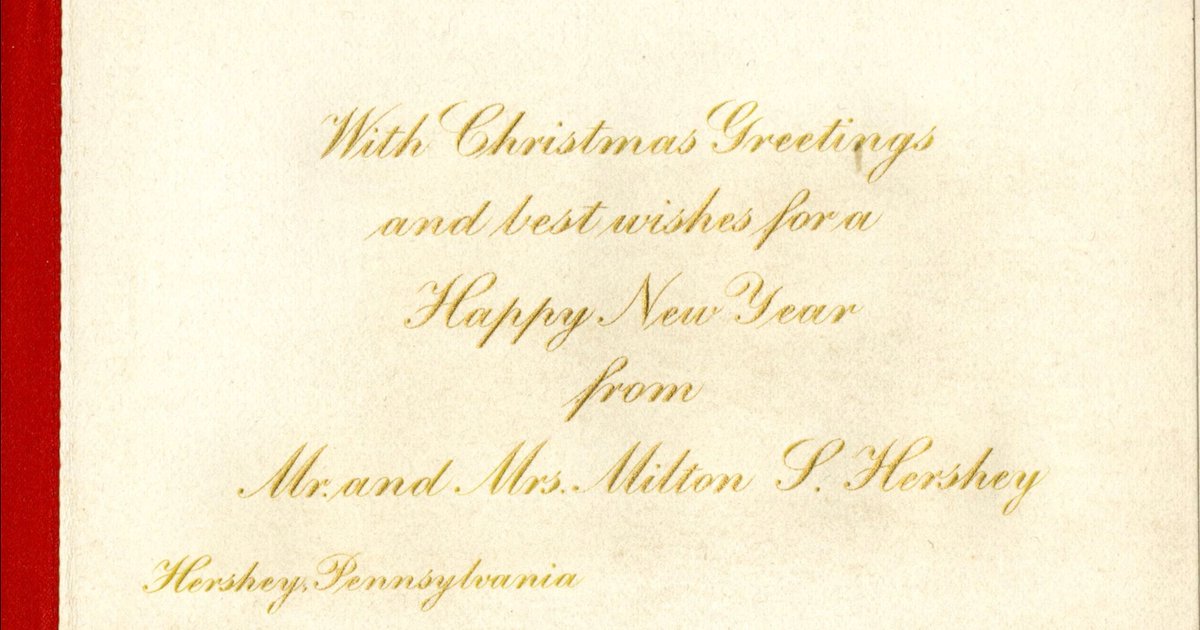 With Christmas Greetings
and best wishes for a
Happy New Year
from
Mr. and Mrs. Milton S. Hershey
Hershey, Pennsylvania